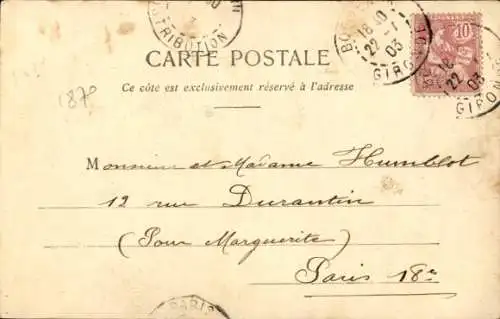 DISTRIBUTION
18 30
22 -1
03
GIRONDE
10
18
22
03
GIRON
CARTE POSTALE
Ce côté est exclusivement réservé à l'adresse
1870
Monsieur et Madame Humblot
12 rue Durantin
(Pour Marguerite)
Paris 18e
PARIS